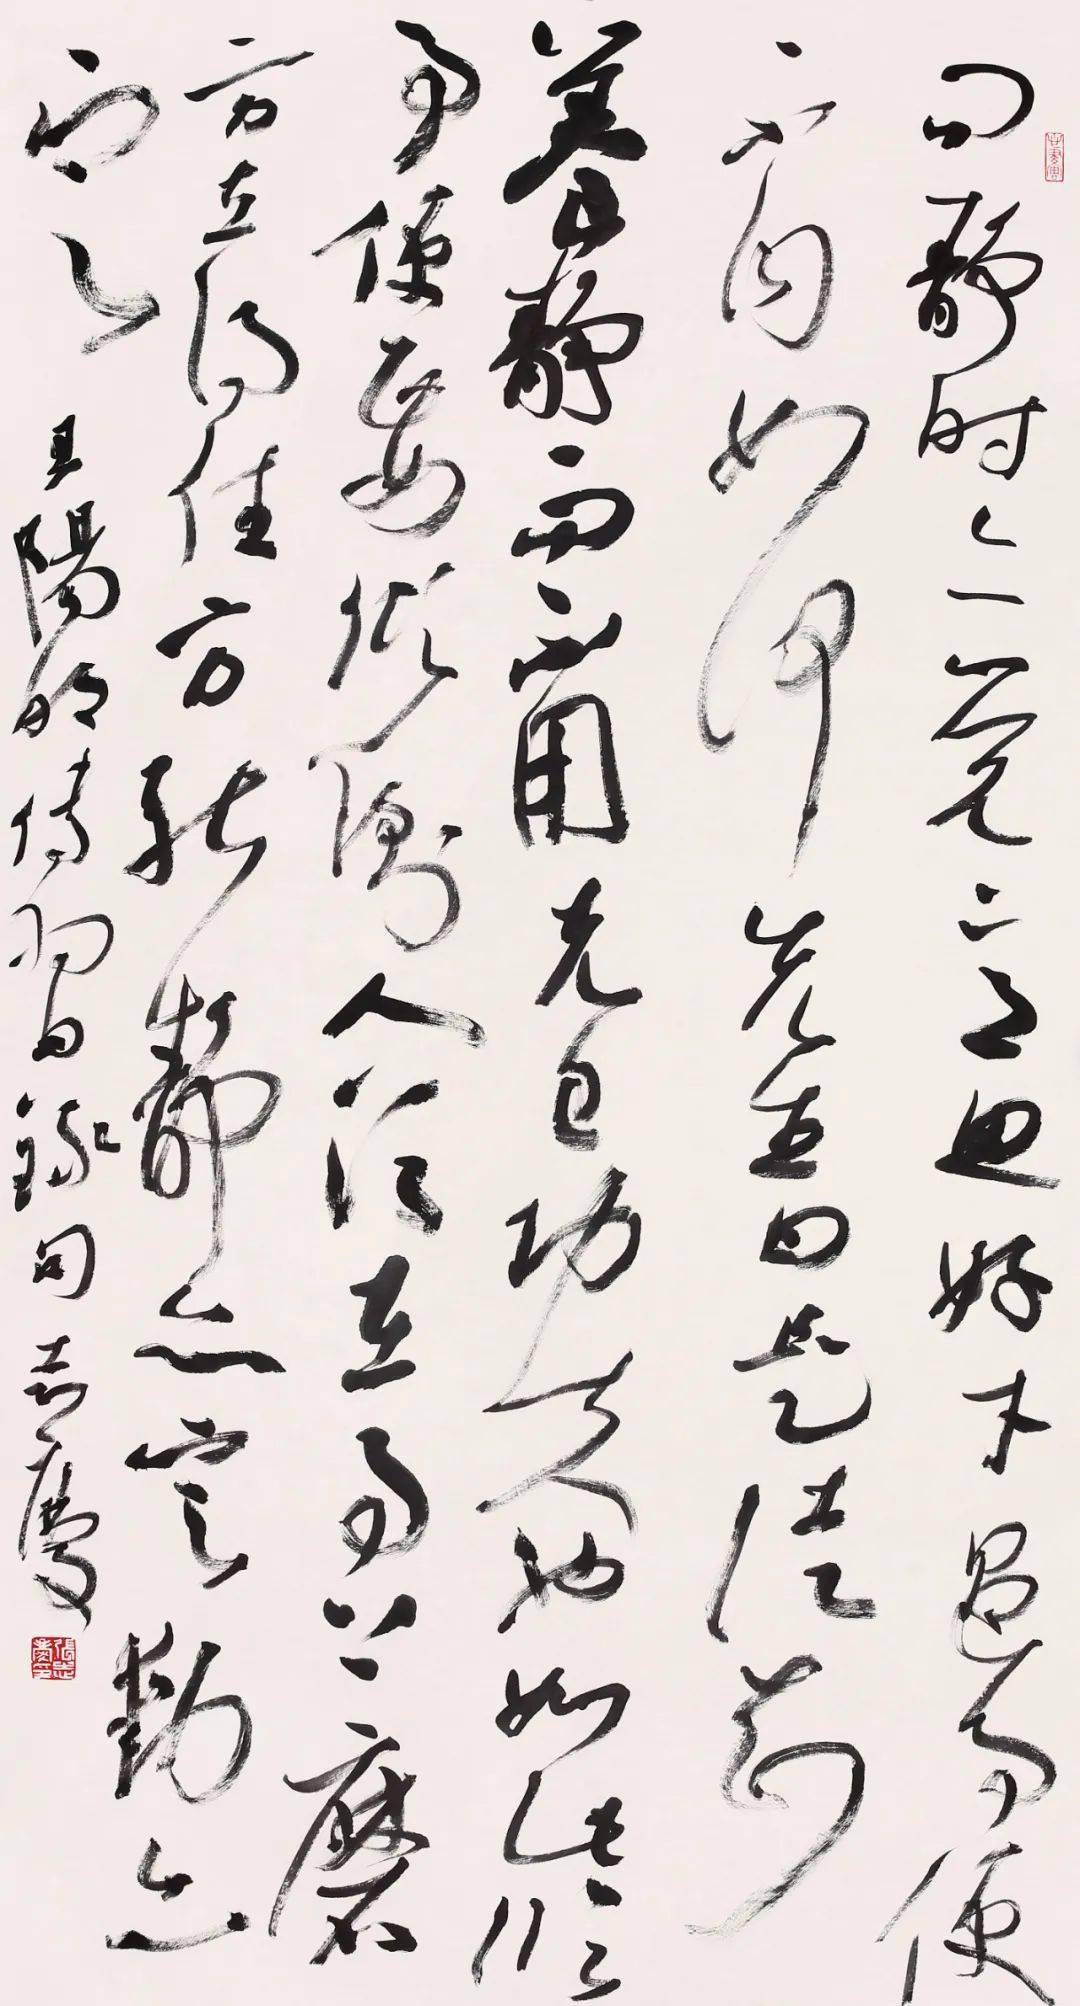 问靜时亦觉意思好才遇事便
不同如何先生曰是徒知
養靜而不用克己功夫也如此臨
事便要倾倒人须在事上磨
方立得住方能靜亦定動亦
定
王陽明傳習錄句 志慶